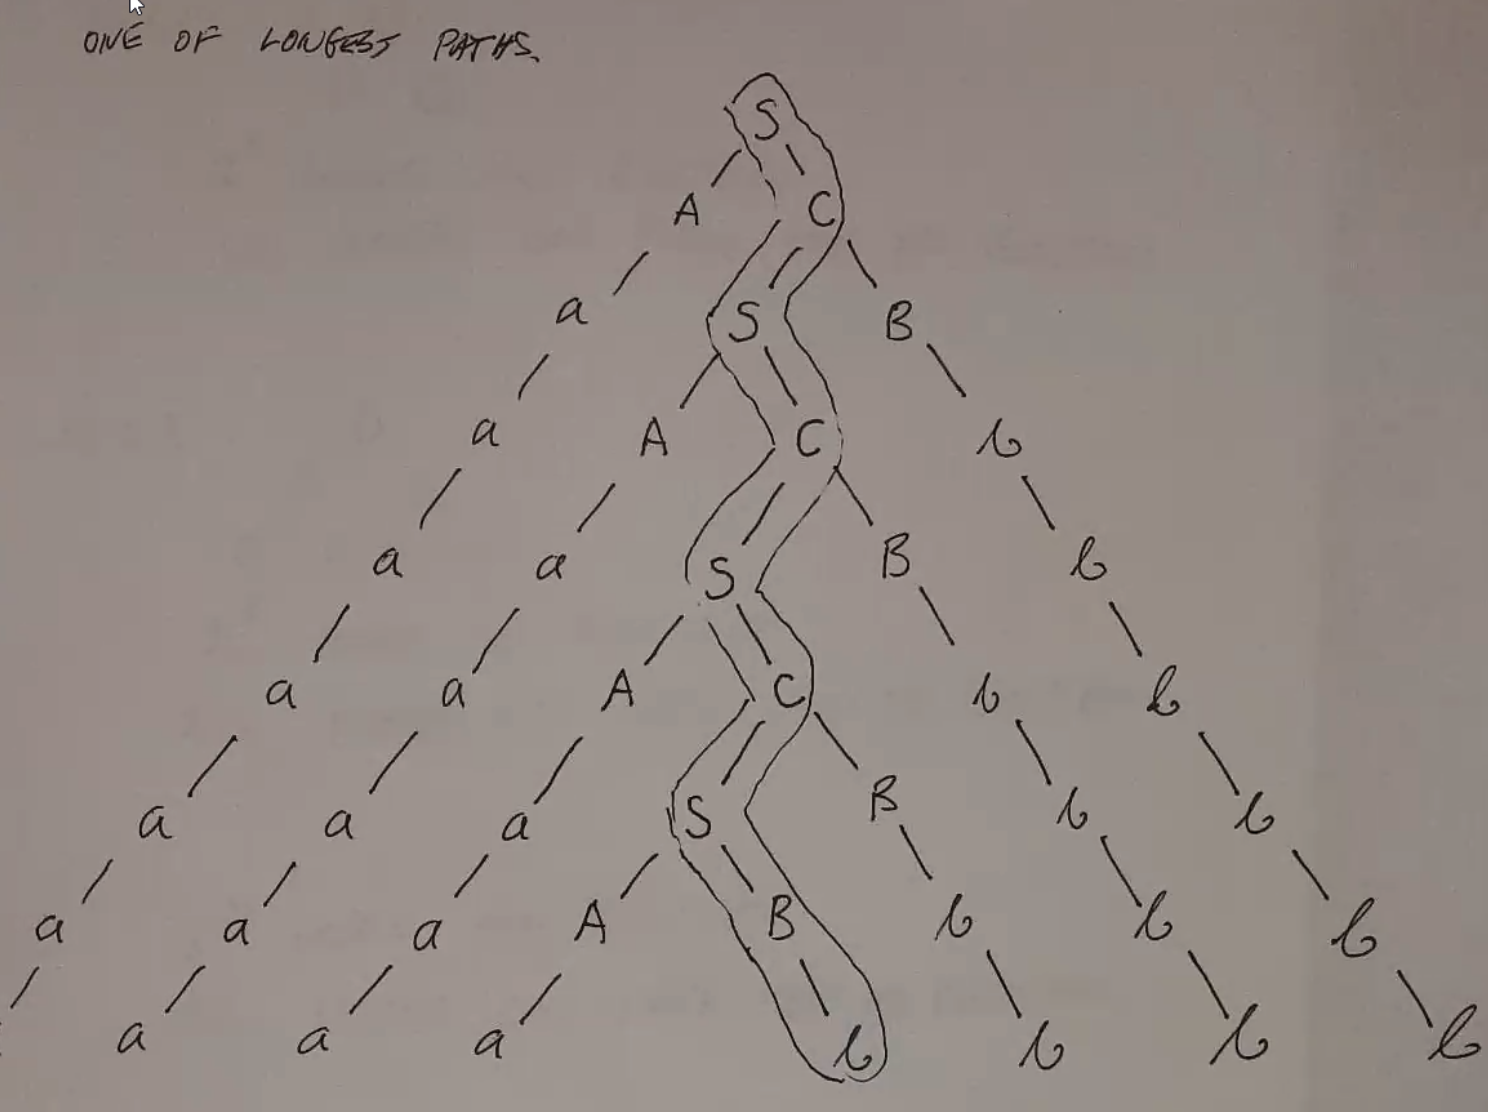 ONE OF LONGEST PATHS.
S
A C
a S B
a A C b
a a S B b
a a A C b b
a a a S B b b
a a a A B b b b
a a a b b b b